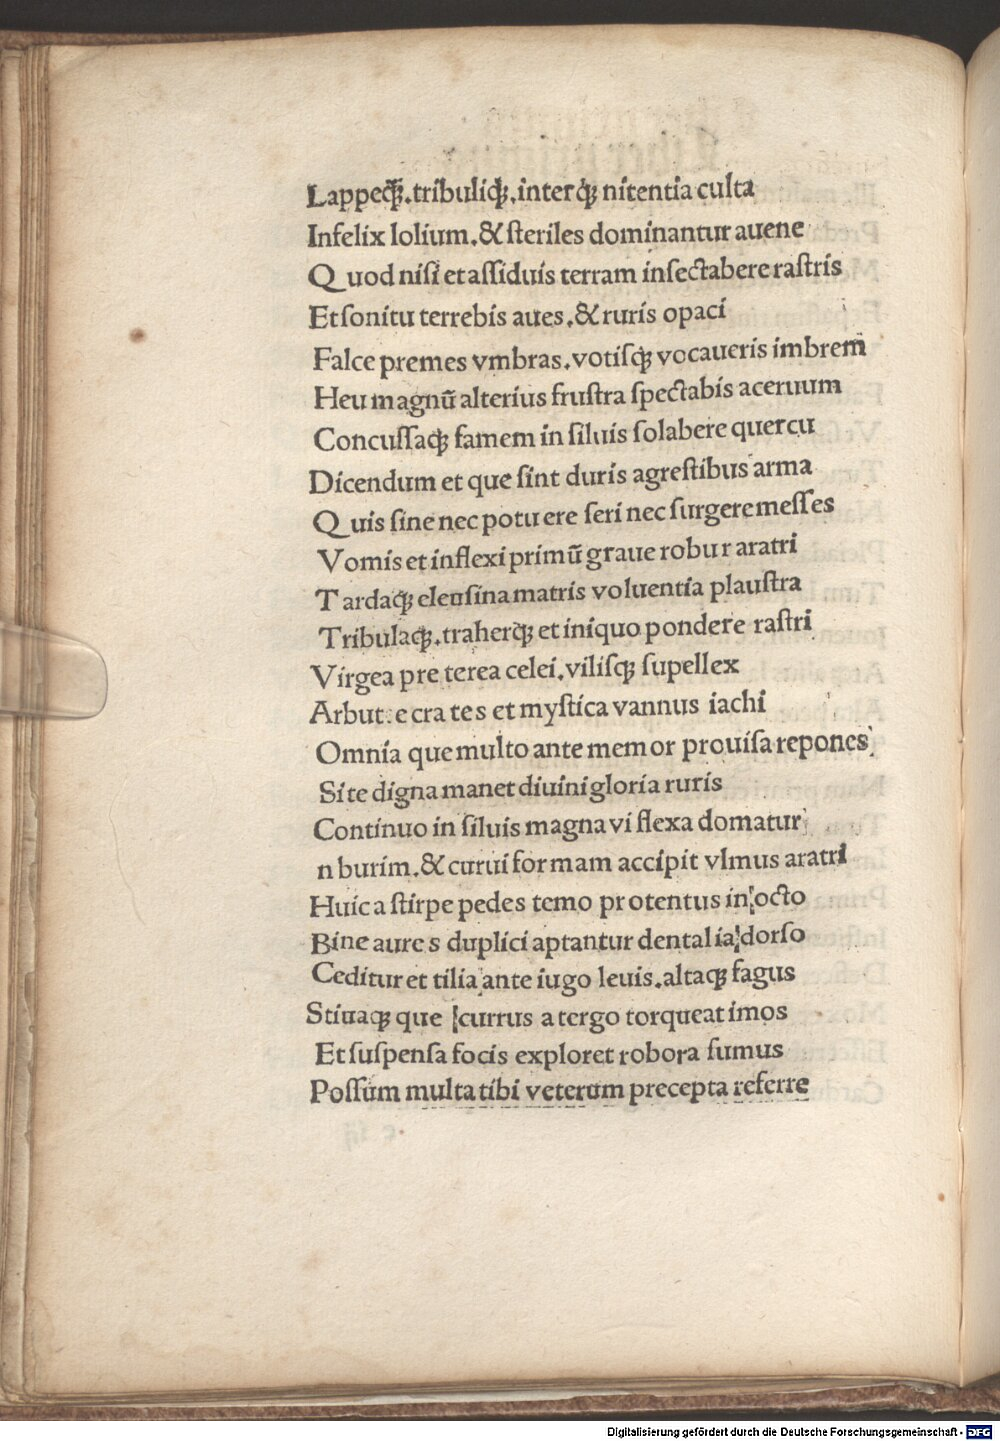 Lappeqꝫ.tribuliqꝫ.interqꝫ nitentia culta
Infelix lolium.&ſteriles dominantur auene
Quod niſi et aſſiduis terram inſectabere raſtris
Et ſonitu terrebis aues.&ruris opaci
Falce premes vmbras.votiſqꝫ vocaueris imbrem
Heu magnū alterius fruſtra ſpectabis aceruum
Concuſſaqꝫ famem in ſiluis ſolabere quercu
Dicendum et que ſint duris agreſtibus arma
Quis ſine nec potuere ſeri nec ſurgere meſſes
Vomis et inflexi primū graue robur aratri
Tardaqꝫ eleuſina matris voluentia plauſtra
Tribulaqꝫ.traherqꝫ et iniquo pondere raſtri
Virgea pre terea celei.viliſqꝫ ſupellex
Arbut.e crates et myſtica vannus iachi
Omnia que multo ante memor prouiſa repones
Si te digna manet diuini gloria ruris
Continuo in ſiluis magna vi flexa domatur
n burim.&curui formam accipit vlmus aratri
Huic a ſtirpe pedes temo protentus in octo
Bine aures duplici aptantur dentalia dorſo
Ceditur et tilia ante iugo leuis.altaqꝫ fagus
Stiuaqꝫ que currus a tergo torqueat imos
Et ſuſpenſa focis exploret robora fumus
Poſſum multa tibi veterum precepta referre
Digitalisierung gefördert durch die Deutsche Forschungsgemeinschaft - DFG